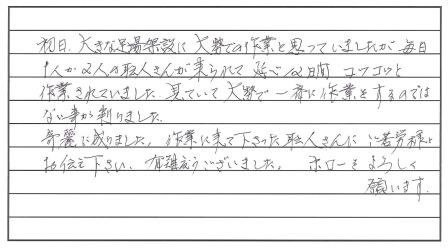 初日、大きな足場架設に大勢での作業と思っていましたが毎日
1人か2人の職人さんが来られて延べ12日間コツコツと
作業されていました。見ていて大勢で一斉に作業をするのでは
ない事が判りました。
奇麗に成りました。作業に来て下さった職人さんに ご苦労様と
お伝え下さい。有難うございました。 ホローもよろしく
願います。